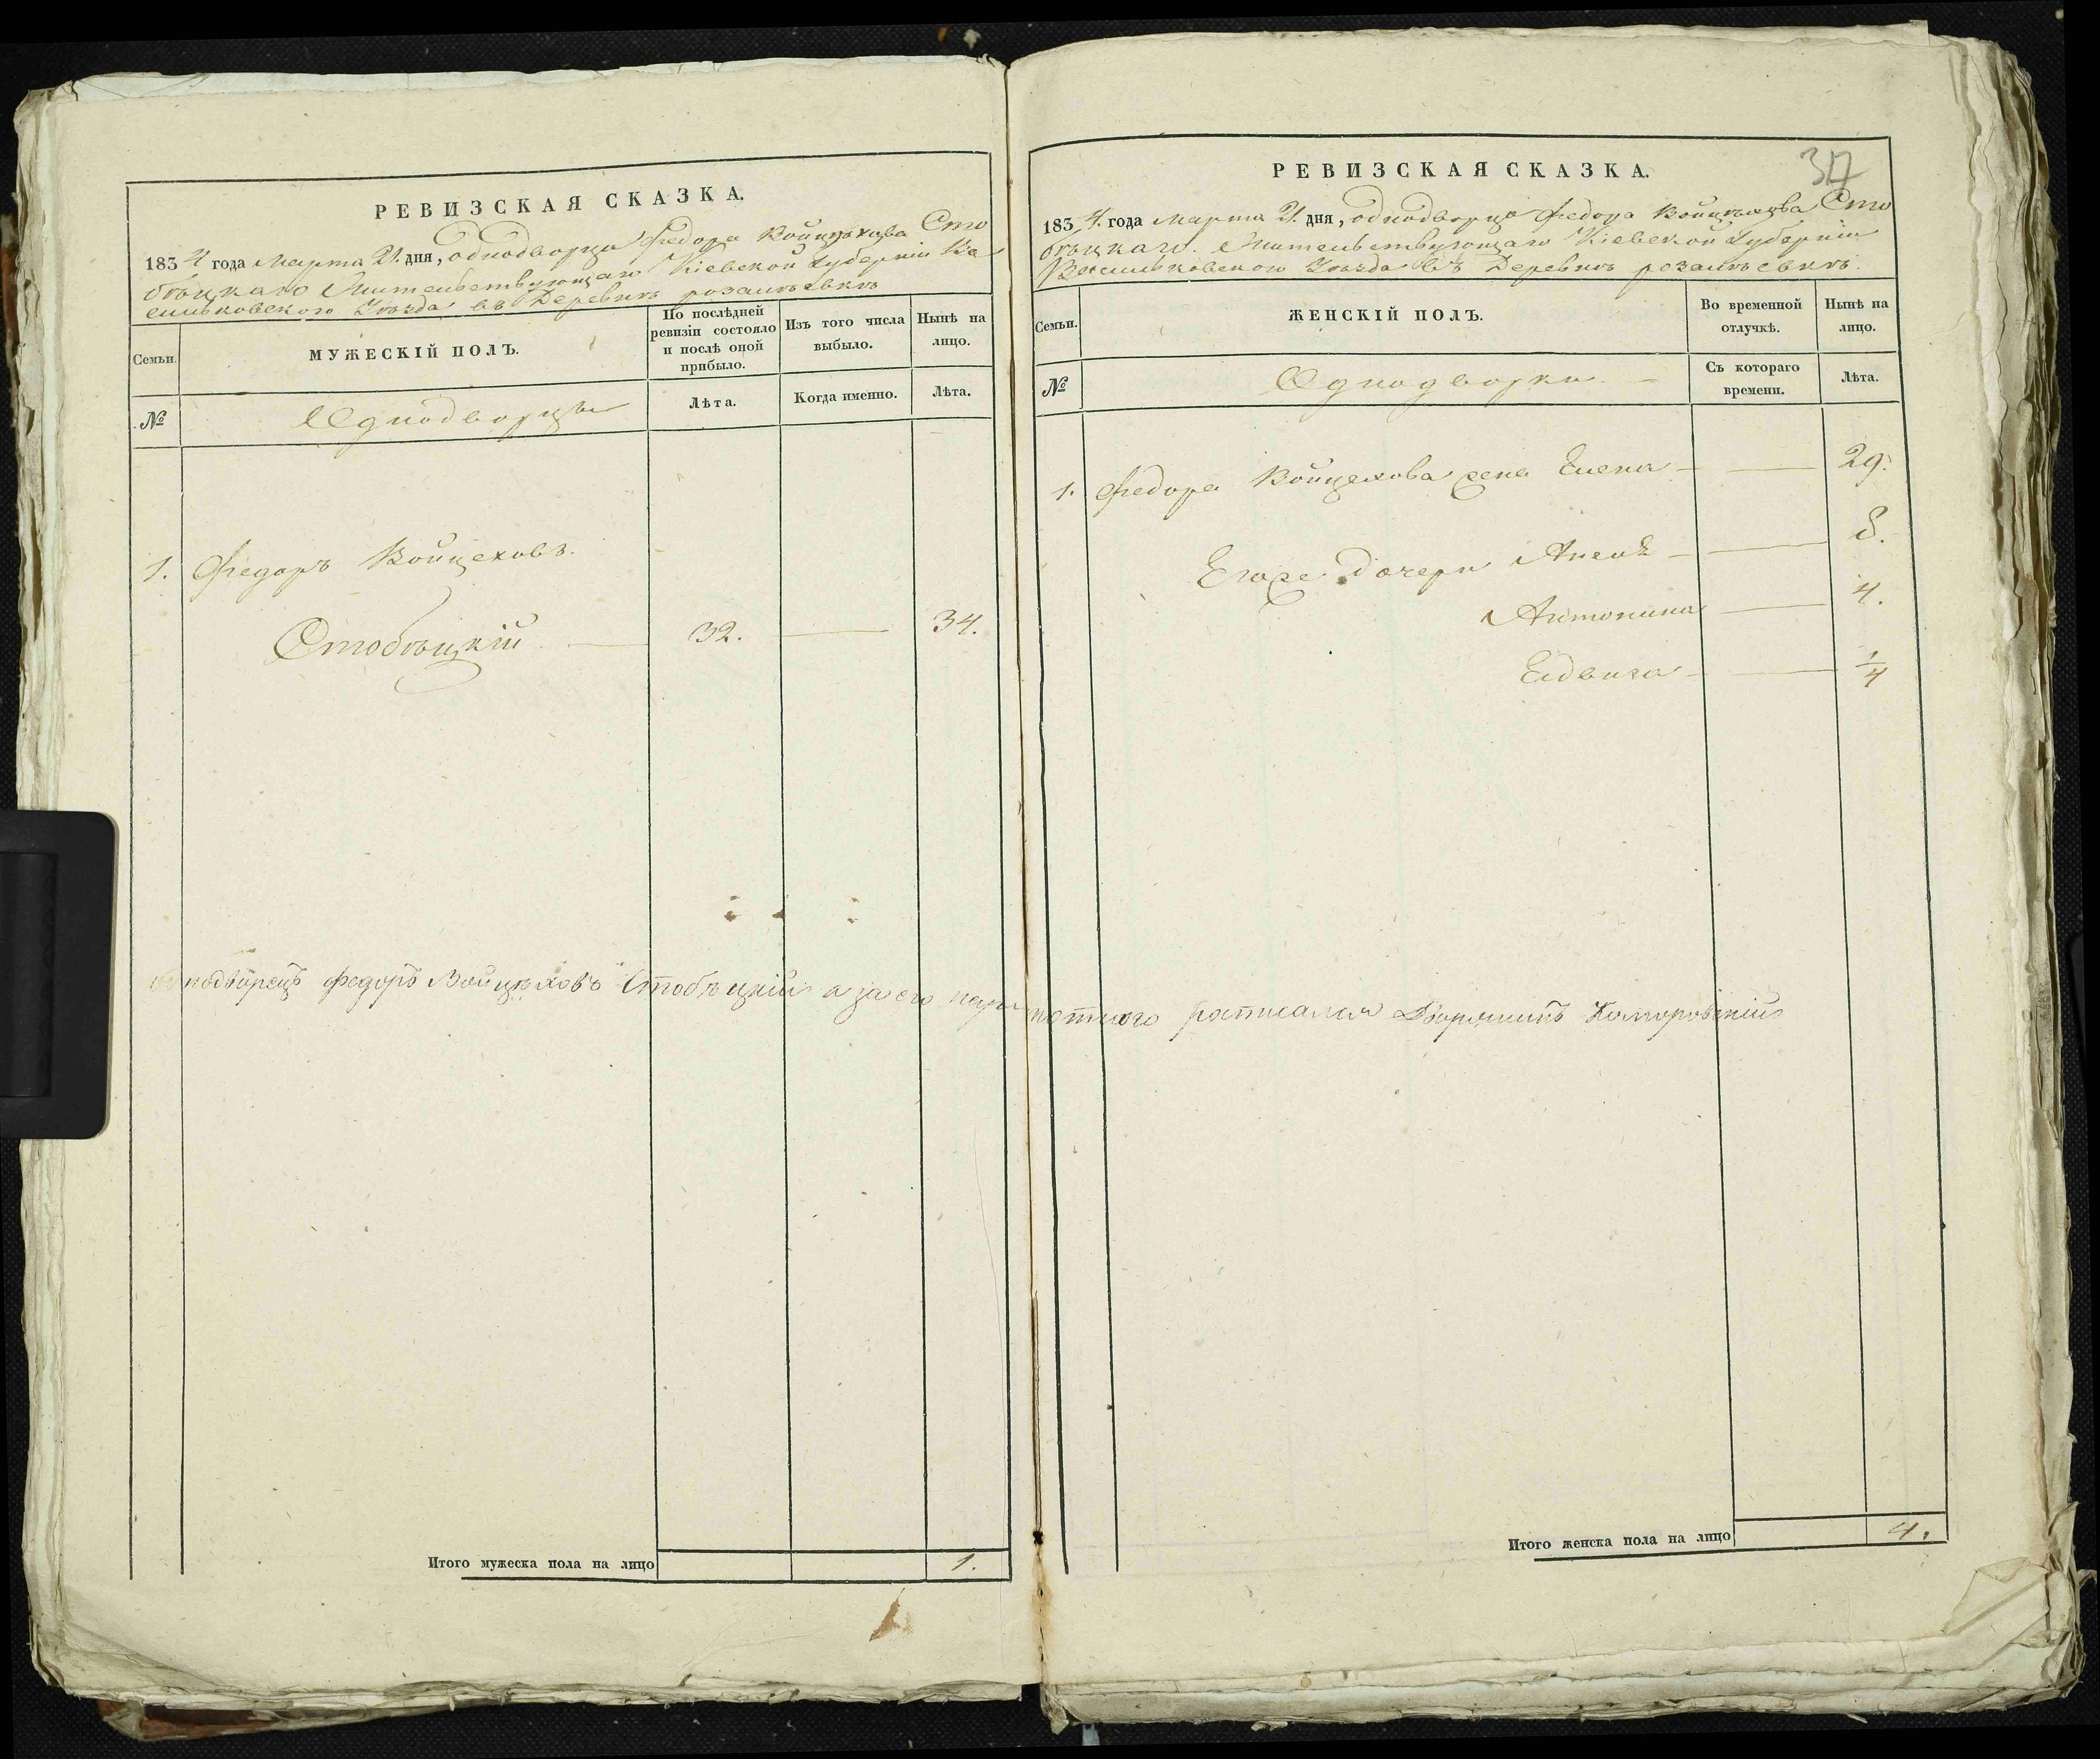 РЕВИЗСКАЯ СКАЗКА.
1834 года Марта 21. дня, однодворца Федора Войцѣхова Сто
бѣцкаго Жительствующаго Кіевской Губерніи Ва
сильковского Уѣзда въ Деревнѣ
Семьи.
МУЖЕСКІЙ ПОЛЪ.
По послѣдней ревизіи состояло и послѣ оной прибыло.
Изъ того числа выбыло.
Нынѣ на лицо.
№
Однодворцы
Лѣта.
Когда именно.
Лѣта.
1. Федоръ Войцеховъ.
Стобѣцкій 32. 34.
однодворецъ Федоръ Войцѣховъ Стобѣцкій а за его негра
Итого мужеска пола на лицо 1.
317
РЕВИЗСКАЯ СКАЗКА.
1834. года Марта 21. дня, однодворца Федора Войцѣхова Сто
бѣцкаго. Жительствующаго Кіевской Губерніи
Васильковского Уѣзда въ Деревнѣ
Семьи.
ЖЕНСКІЙ ПОЛЪ.
Во временной отлучкѣ.
Нынѣ на лицо.
№
Однодворки
Съ котораго времени.
Лѣта.
1. Федора Войцехова жена Елена 29.
Егоже Дочери 8.
Антонина 4.
Едвига 1/4
мотного росписался Дворянинъ Коморовскій
Итого женска пола на лицо 4.